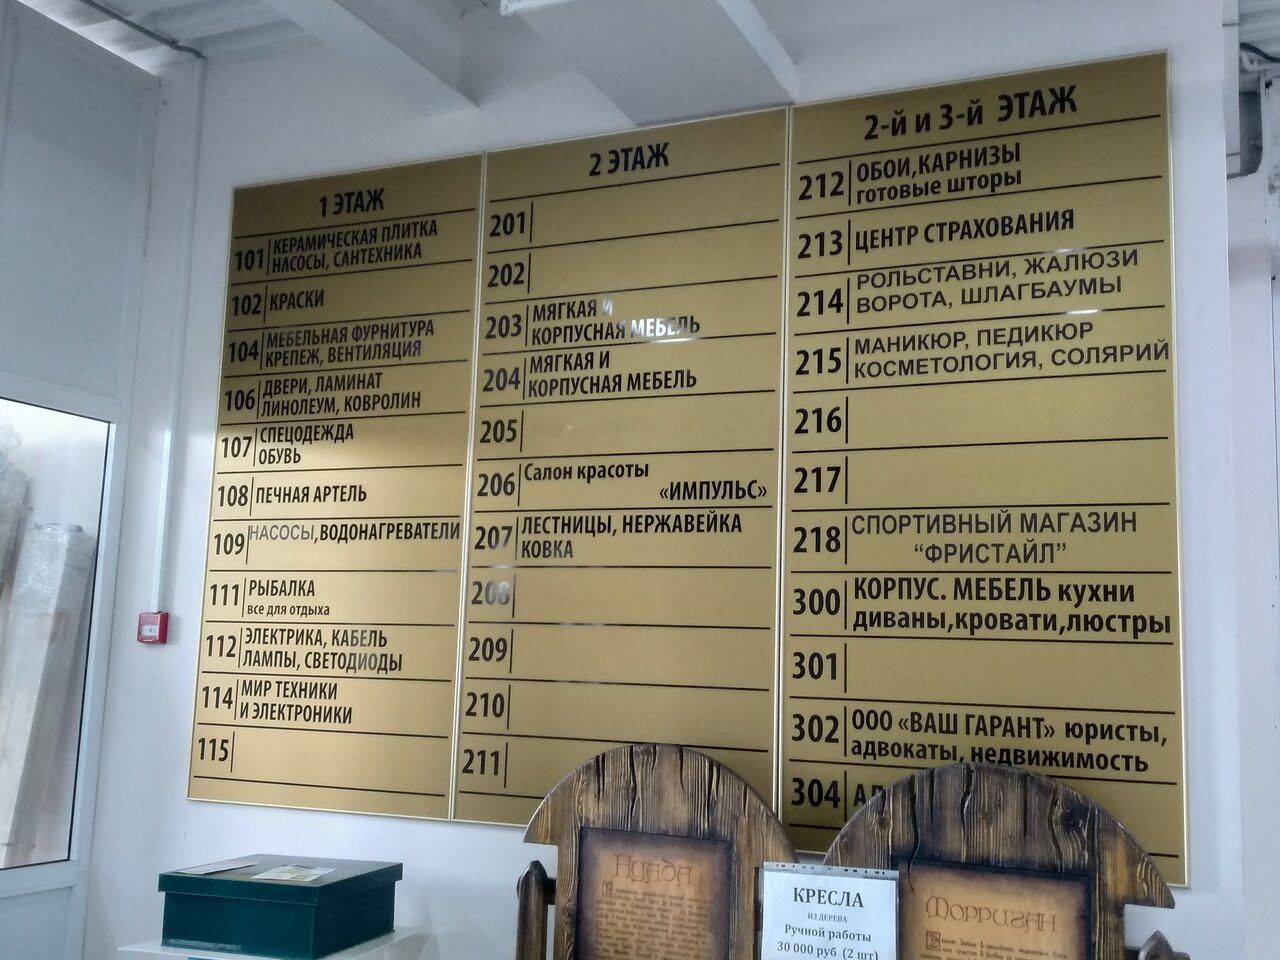 1 ЭТАЖ
101 КЕРАМИЧЕСКАЯ ПЛИТКА
НАСОСЫ, САНТЕХНИКА
102 КРАСКИ
104 МЕБЕЛЬНАЯ ФУРНИТУРА
КРЕПЕЖ, ВЕНТИЛЯЦИЯ
106 ДВЕРИ, ЛАМИНАТ
ЛИНОЛЕУМ, КОВРОЛИН
107 СПЕЦОДЕЖДА
ОБУВЬ
108 ПЕЧНАЯ АРТЕЛЬ
109 НАСОСЫ,ВОДОНАГРЕВАТЕЛИ
111 РЫБАЛКА
все для отдыха
112 ЭЛЕКТРИКА, КАБЕЛЬ
ЛАМПЫ, СВЕТОДИОДЫ
114 МИР ТЕХНИКИ
И ЭЛЕКТРОНИКИ
115
2 ЭТАЖ
201
202
203 МЯГКАЯ И
КОРПУСНАЯ МЕБЕЛЬ
204 МЯГКАЯ И
КОРПУСНАЯ МЕБЕЛЬ
205
206 Салон красоты
«ИМПУЛЬС»
207 ЛЕСТНИЦЫ, НЕРЖАВЕЙКА
КОВКА
208
209
210
211
2-й и 3-й ЭТАЖ
212 ОБОИ,КАРНИЗЫ
готовые шторы
213 ЦЕНТР СТРАХОВАНИЯ
214 РОЛЬСТАВНИ, ЖАЛЮЗИ
ВОРОТА, ШЛАГБАУМЫ
215 МАНИКЮР, ПЕДИКЮР
КОСМЕТОЛОГИЯ, СОЛЯРИЙ
216
217
218 СПОРТИВНЫЙ МАГАЗИН
“ФРИСТАЙЛ”
300 КОРПУС. МЕБЕЛЬ кухни
диваны,кровати,люстры
301
302 ООО «ВАШ ГАРАНТ» юристы,
адвокаты, недвижимость
304
НУАДА
КРЕСЛА
ИЗ ДЕРЕВА
Ручной работы
30 000 руб (2 шт)
МОРРИГАН